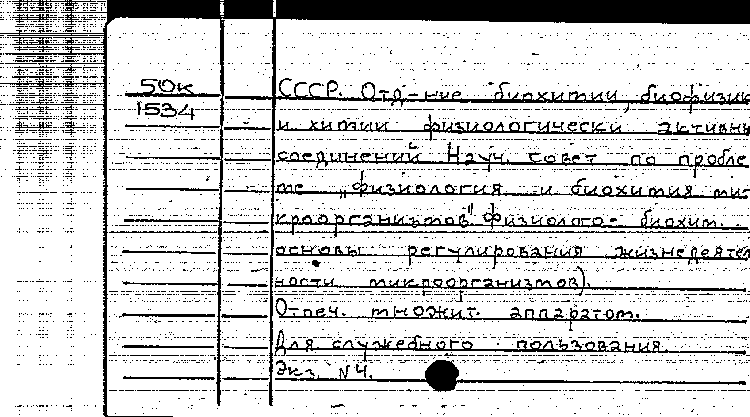 50к
1534
СССР. Отд-ние биохимии, биофизик
и химии физиологически активны
соединений Науч. совет по пробле
ме „физиология и биохимия ми
кроорганизмов" физиолого- биохим.
основы регулирования жизнедеятел
ности микроорганизмов).
Отпеч. множит. аппаратом.
Для служебного пользования.
Экз. N4.